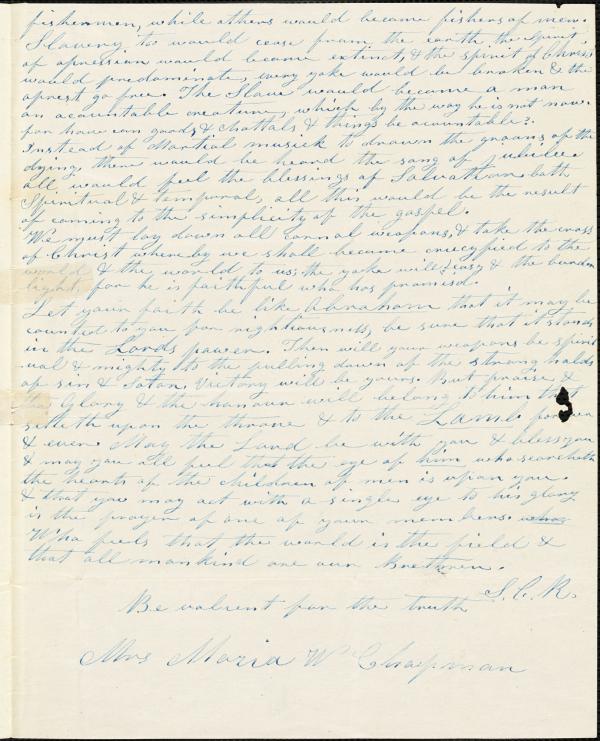 fishermen, while athers would became fishers of men.
Slavery to would cease from the earth the spirit
of opression would became extinct, & the spirit of Christ
would predominate, every yoke would be broken & the
oprest go free. The Slave would became a man
an acountable creature, which by the way he is not now.
for how can goods & chattals & things be acountable?.
Instead of Martial musick to drown the groans of the
dying, there would be heard the song of jubilee
all would feel the blessings of Salvation both
Spiritual & temporal, all this would be the result
of coming to the simplicity of the gospel.
We must lay down all carnal weapons, & take the cross
of Christ whereby we shall became crucyfied to the
world & the world to us; the yoke will easy & the burden
light, for he is faithful who has promisd.
Let your faith be like Abraham that it may be
counted to you for rightiousness, be sure that it stands
in the Lords power. Then will your weapons be spirit
ual & mighty to the pulling down of the strong holds
of sin & Satan. Victory will be yours. But praise &
Glory & the honour will belong to him that
setteth upon the throne & to the Lamb for ever
& ever. May the Lord be with you & bless you
& may you all feel that the eye of him who searcheth
the hearts of the children of men is upon you.
& that you may act with a single eye to his glory
is the prayer of one of your members.
Who feels that the world is the field &
that all mankind are our Brethren.
S. C. R.
Be valient for the truth
Mrs Maria W Chapman